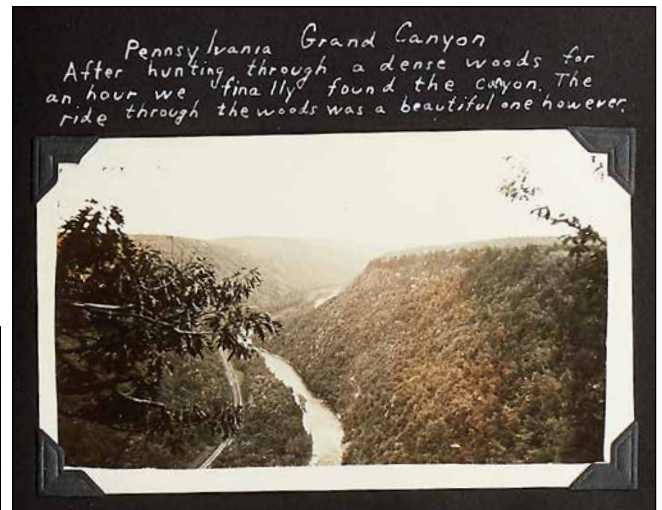 Pennsylvania Grand Canyon
After hunting through a dense woods for
an hour we finally found the canyon. The
ride through the woods was a beautiful one however.